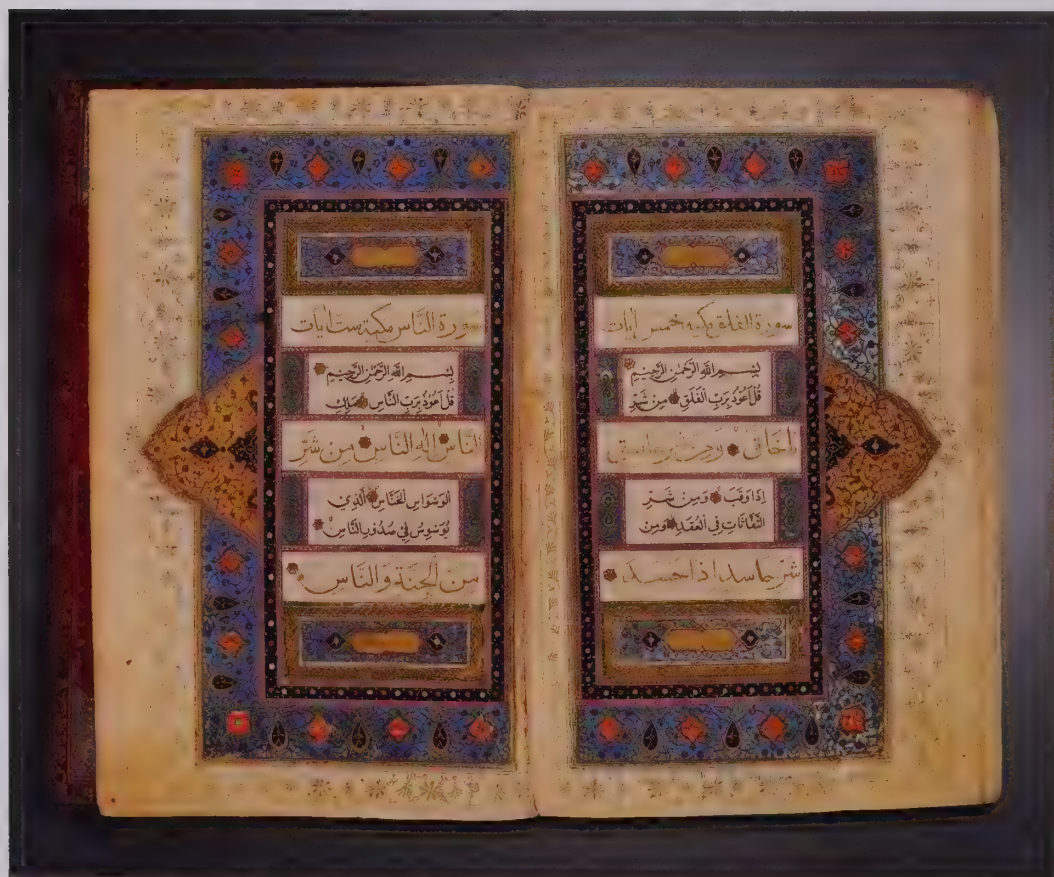 سورة الفلق مكية خمس ايات
بِسْمِ اللَّهِ الرَّحْمٰنِ الرَّحِيمِ
قُلْ اَعُوذُ بِرَبِّ الْفَلَقِ مِنْ شَرِّ
ما خلق ومن شر غاسق
اِذَا وَقَبَ وَمِنْ شَرِّ
النَّفَّاثَاتِ فِي الْعُقَدِ وَمِن
شَرِّ حاسد اذا حسد
سورة النَّاس مكية ست ايات
بِسْمِ اللَّهِ الرَّحْمٰنِ الرَّحِيمِ
قُلْ اَعُوذُ بِرَبِّ النَّاسِ مَلِكِ
النَّاسِ اِلٰهِ النَّاسِ مِن شَرِّ
الْوَسْوَاسِ الْخَنَّاسِ اَلَّذِي
يُوَسْوِسُ فِي صُدُورِ النَّاسِ
مِنَ الْجِنَّةِ وَالنَّاسِ